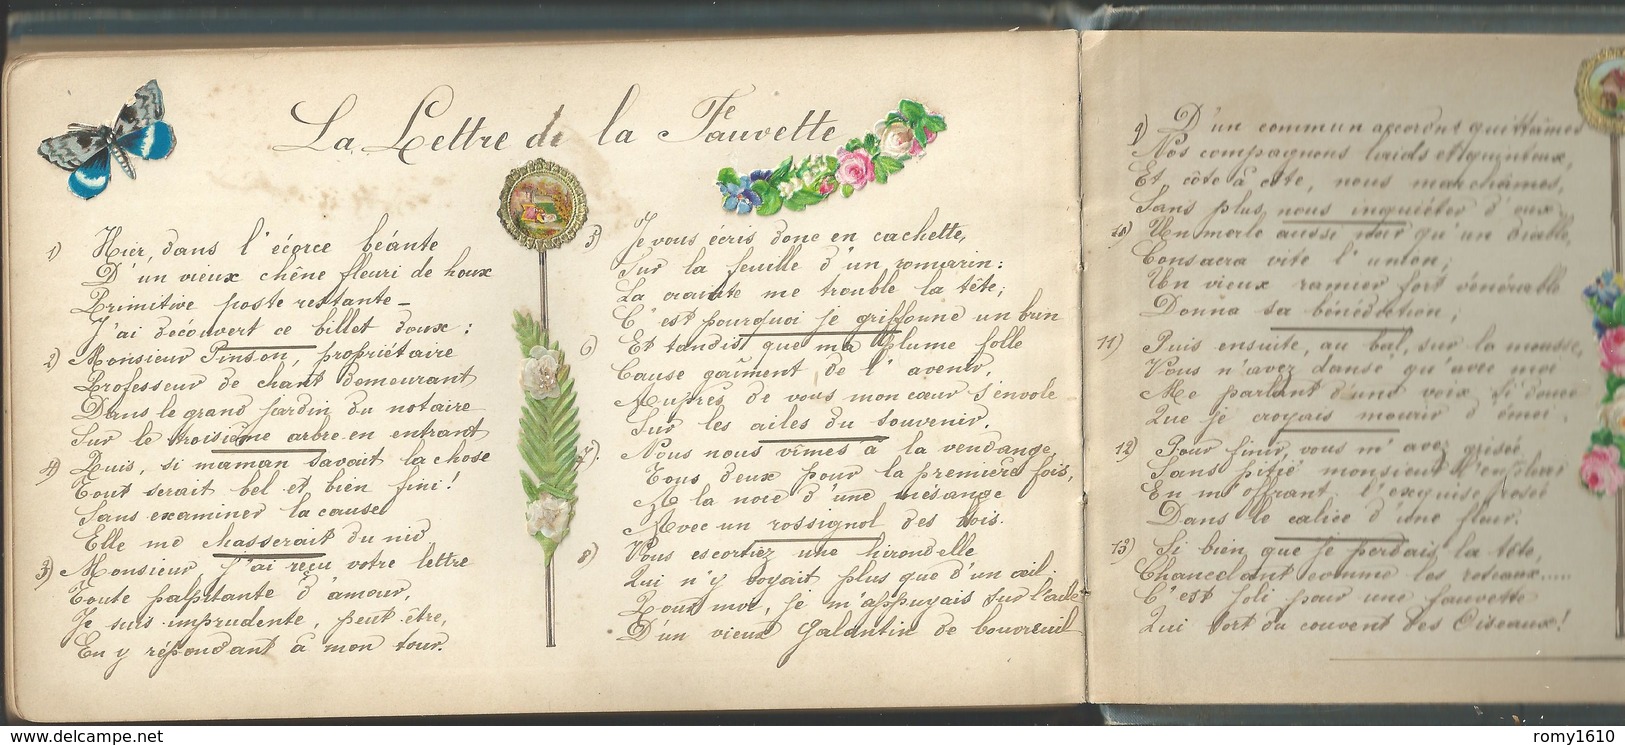 La Lettre de la Fauvette
1) Hier, dans l'écorce béante
D'un vieux chêne fleuri de houx
Primitive poste restante –
J'ai découvert ce billet doux :
2) Monsieur Pinson, propriétaire
Professeur de chant demeurant
Dans le grand jardin du notaire
Sur le troisième arbre en entrant
4) Puis, si maman savait la chose
Tout serait bel et bien fini !
Sans examiner la cause
Elle me chasserait du nid
3) Monsieur j'ai reçu votre lettre
Toute palpitante d'amour,
Je suis imprudente, peut être,
En y répondant à mon tour.
5) Je vous écris donc en cachette,
Sur la feuille d'un romarin :
La crainte me trouble la tête;
C'est pourquoi je griffonne un brin
6) Et tandis que ma plume folle
Cause gaîment de l'avenir,
Auprès de vous mon cœur s'envole
Sur les ailes du souvenir.
7). Nous nous vîmes à la vendange,
Tous deux pour la première fois,
A la noce d'une mésange
Avec un rossignol des bois.
8) Vous escortiez une hirondelle
Qui n'y voyait plus que d'un œil.
Pour moi, je m'appuyais sur l'aile
D'un vieux galantin de bouvreuil
9) D'un commun accord nous quittâmes
Nos compagnons laids et quinteux,
Et côte à côte, nous marchâmes,
Sans plus nous inquiéter d'eux
10) Un merle aussi noir qu'un diable,
Consacra vite l'union;
Un vieux ramier fort vénérable
Donna sa bénédiction;
11) Puis ensuite, au bal, sur la mousse,
Vous n'avez dansé qu'avec moi
Me parlant d'une voix si douce
Que je croyais mourir d'émoi.
12) Pour finir, vous m'avez grisée
Sans pitié monsieur
En m'offrant l'exquise rosée
Dans le calice d'une fleur.
13) Si bien que je perdais la tête,
Chancelant comme les roseaux.....
C'est joli pour une fauvette
Qui sort du couvent des Oiseaux !
romy1610